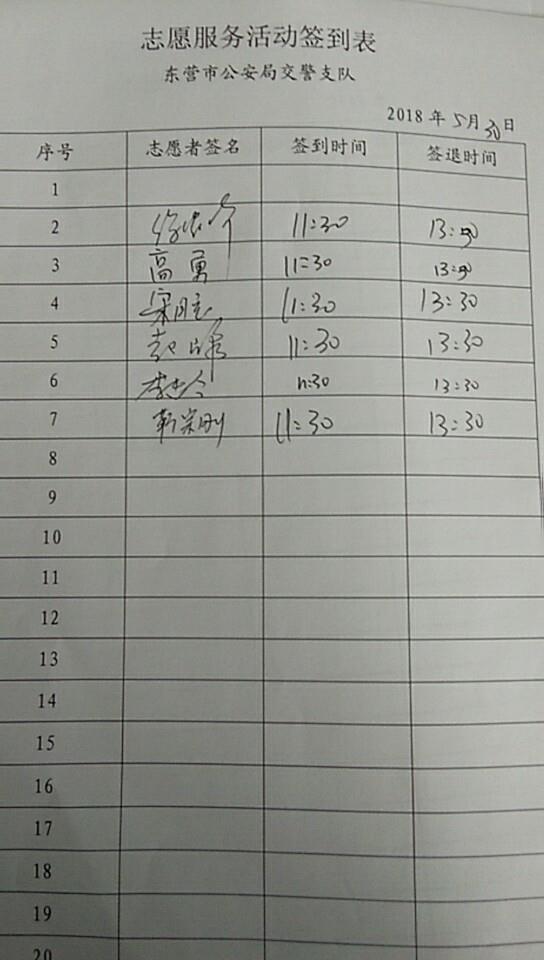 志愿服务活动签到表
东营市公安局交警支队
2018 年 5月30日
序号 志愿者签名 签到时间 签退时间
1
2 11:30 13:30
3 高勇 11:30 13:30
4 11:30 13:30
5 11:30 13:30
6 11:30 13:30
7 靳宗刚 11:30 13:30
8
9
10
11
12
13
14
15
16
17
18
19
20